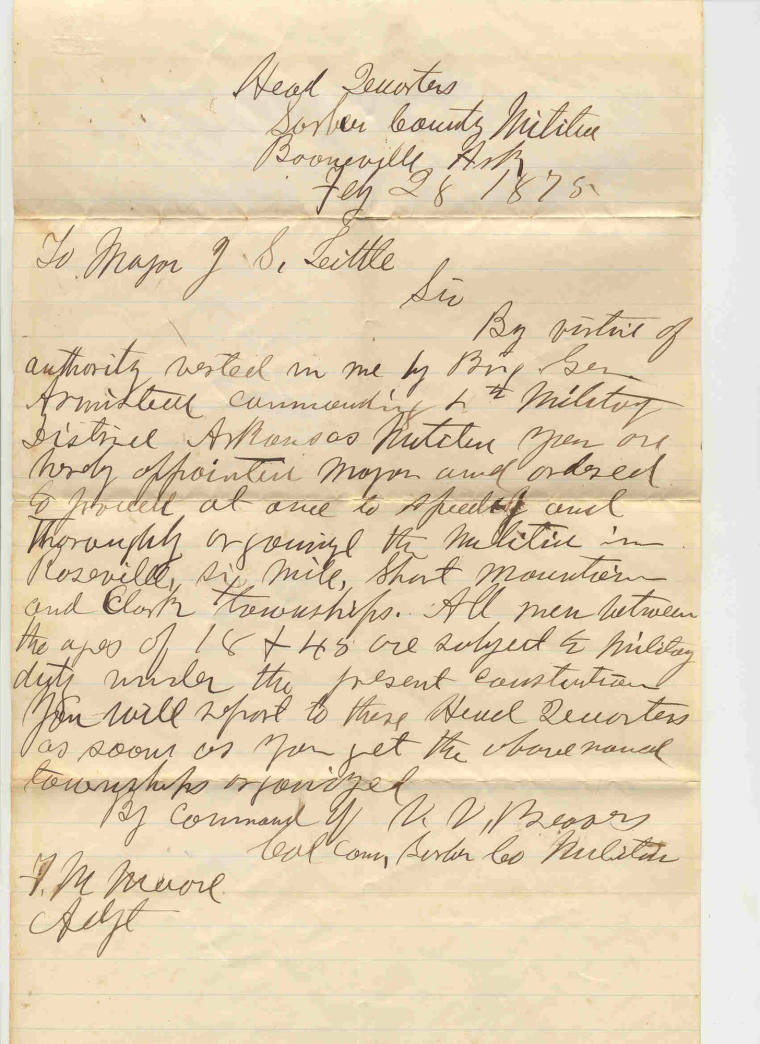 Head Quarters
Sarber County Militia
Booneville Ark
Feby 28 1875
To Major J S, Little
Sir
By virtue of
authority vested in me by Brig. Gen
Armistead commanding 4th Military
District Arkansas Militia you are
hereby appointed Major and ordered
to proceed at once to speedily and
thoroughly organize the Militia in
Roseville, six mile, Short mountain
and Clark townships. All men between
the ages of 18 & 45 are subject to Military
duty under the present constitution
You will report to these Head Quarters
as soon as you get the above named
townships organized
By Command of V. V, Beavers
Col Com, Sarber Co Militia
F. M Moore
Adgt